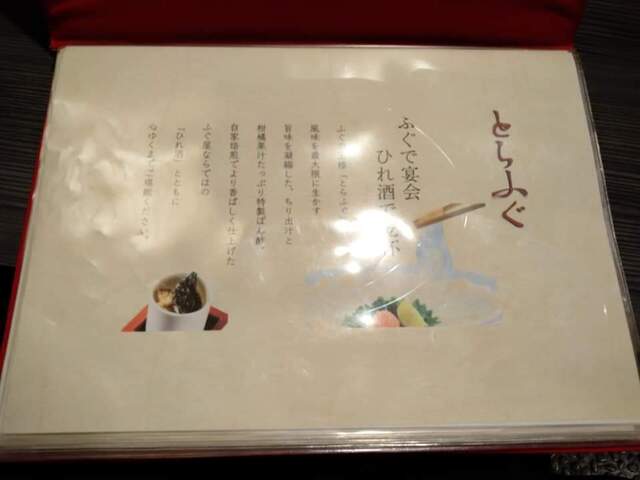 とらふぐ
ふぐで宴会
ひれ酒で乾杯
「とらふぐ
風味を最大限に生かす
旨味を凝縮した、ちり出汁と
柑橘果汁たっぷり特製ぽん酢。
自家焙煎でより香ばしく仕上げた
ふぐ屋ならではの
「ひれ酒」とともに
心ゆくまでご堪能ください。